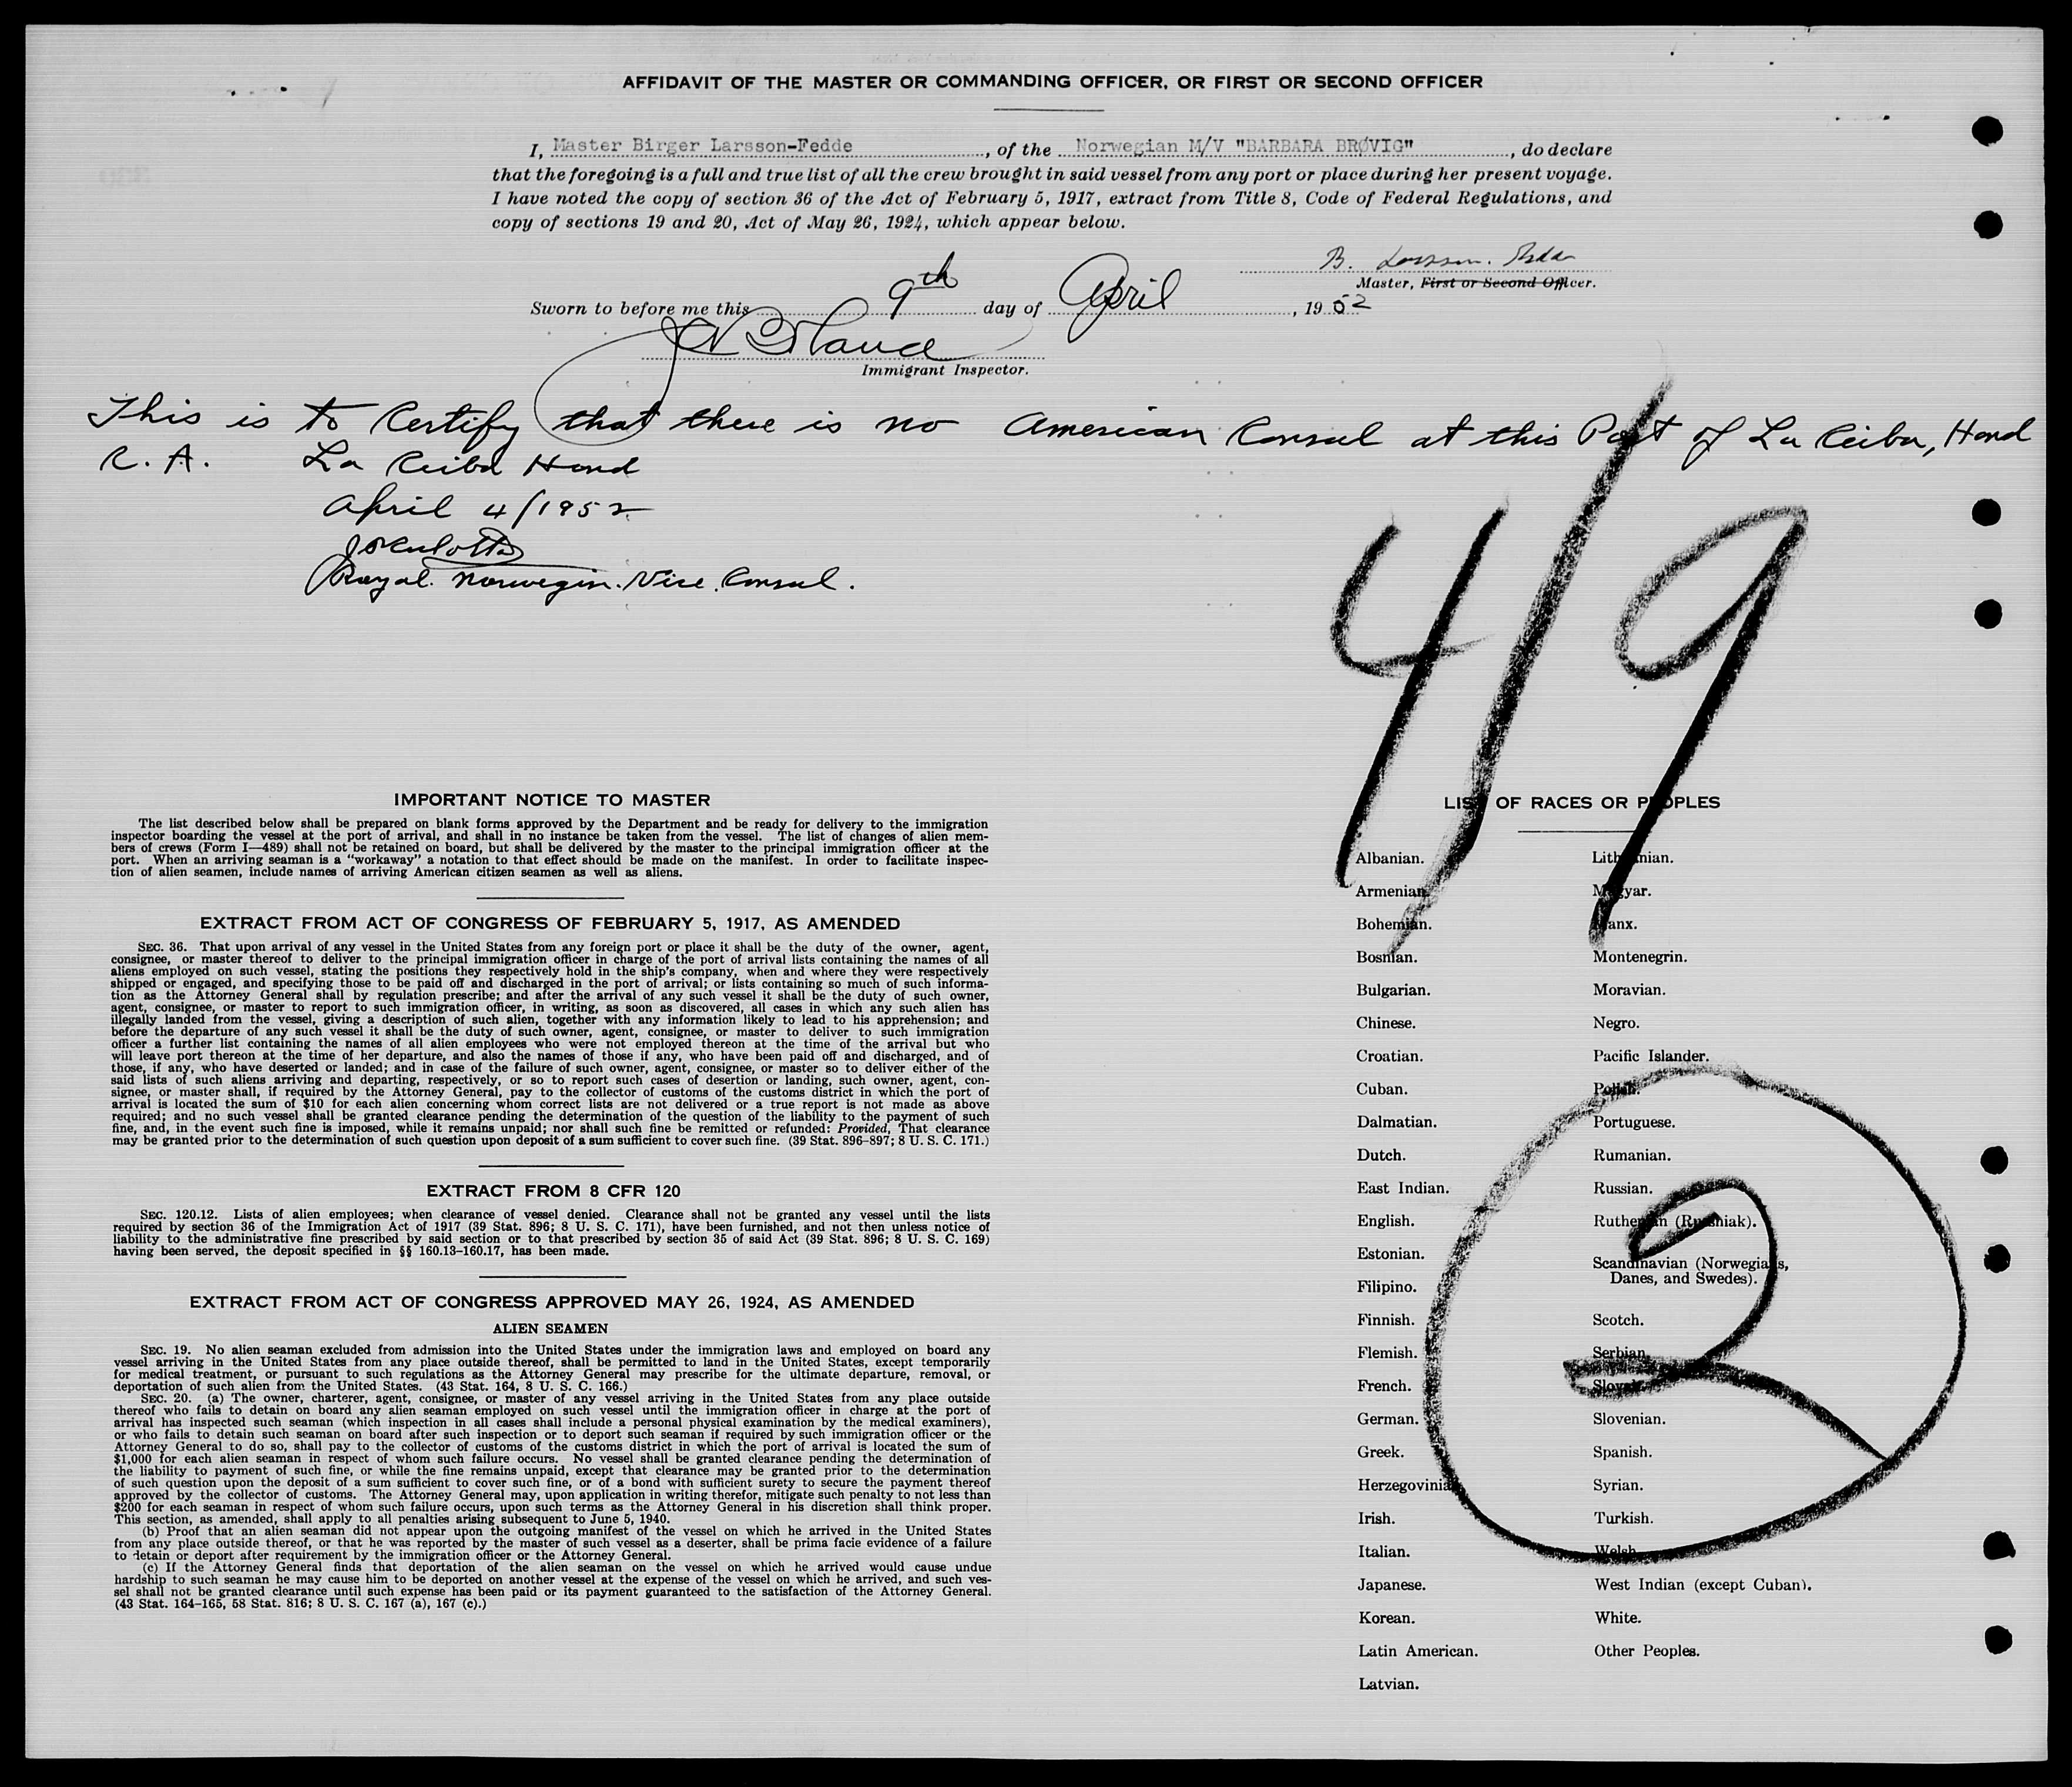 AFFIDAVIT OF THE MASTER OR COMMANDING OFFICER, OR FIRST OR SECOND OFFICER
I, Master Birger Larsson-Fedde, of the Norwegian M/V "BARBARA BRØVIG", do declare
that the foregoing is a full and true list of all the crew brought in said vessel from any port or place during her present voyage.
I have noted the copy of section 36 of the Act of February 5, 1917, extract from Title 8, Code of Federal Regulations, and
copy of sections 19 and 20, Act of May 26, 1924, which appear below.
B. Larsson-Fedde
Master, First or Second Officer.
Sworn to before me this 9th day of April, 1952
Immigrant Inspector.
This is to Certify that there is no American Consul at this Port of La Ceiba, Hond
C. A. La Ceiba Hond
April 4/1952
Royal Norwegin Vice Consul.
4/9
IMPORTANT NOTICE TO MASTER
The list described below shall be prepared on blank forms approved by the Department and be ready for delivery to the immigration
inspector boarding the vessel at the port of arrival, and shall in no instance be taken from the vessel. The list of changes of alien mem-
bers of crews (Form I—489) shall not be retained on board, but shall be delivered by the master to the principal immigration officer at the
port. When an arriving seaman is a "workaway" a notation to that effect should be made on the manifest. In order to facilitate inspec-
tion of alien seamen, include names of arriving American citizen seamen as well as aliens.
EXTRACT FROM ACT OF CONGRESS OF FEBRUARY 5, 1917, AS AMENDED
SEC. 36. That upon arrival of any vessel in the United States from any foreign port or place it shall be the duty of the owner, agent,
consignee, or master thereof to deliver to the principal immigration officer in charge of the port of arrival lists containing the names of all
aliens employed on such vessel, stating the positions they respectively hold in the ship's company, when and where they were respectively
shipped or engaged, and specifying those to be paid off and discharged in the port of arrival; or lists containing so much of such informa-
tion as the Attorney General shall by regulation prescribe; and after the arrival of any such vessel it shall be the duty of such owner,
agent, consignee, or master to report to such immigration officer, in writing, as soon as discovered, all cases in which any such alien has
illegally landed from the vessel, giving a description of such alien, together with any information likely to lead to his apprehension; and
before the departure of any such vessel it shall be the duty of such owner, agent, consignee, or master to deliver to such immigration
officer a further list containing the names of all alien employees who were not employed thereon at the time of the arrival but who
will leave port thereon at the time of her departure, and also the names of those if any, who have been paid off and discharged, and of
those, if any, who have deserted or landed; and in case of the failure of such owner, agent, consignee, or master so to deliver either of the
said lists of such aliens arriving and departing, respectively, or so to report such cases of desertion or landing, such owner, agent, con-
signee, or master shall, if required by the Attorney General, pay to the collector of customs of the customs district in which the port of
arrival is located the sum of $10 for each alien concerning whom correct lists are not delivered or a true report is not made as above
required; and no such vessel shall be granted clearance pending the determination of the question of the liability to the payment of such
fine, and, in the event such fine is imposed, while it remains unpaid; nor shall such fine be remitted or refunded: Provided, That clearance
may be granted prior to the determination of such question upon deposit of a sum sufficient to cover such fine. (39 Stat. 896-897; 8 U. S. C. 171.)
EXTRACT FROM 8 CFR 120
SEC. 120.12. Lists of alien employees; when clearance of vessel denied. Clearance shall not be granted any vessel until the lists
required by section 36 of the Immigration Act of 1917 (39 Stat. 896; 8 U. S. C. 171), have been furnished, and not then unless notice of
liability to the administrative fine prescribed by said section or to that prescribed by section 35 of said Act (39 Stat. 896; 8 U. S. C. 169)
having been served, the deposit specified in §§ 160.13-160.17, has been made.
EXTRACT FROM ACT OF CONGRESS APPROVED MAY 26, 1924, AS AMENDED
ALIEN SEAMEN
SEC. 19. No alien seaman excluded from admission into the United States under the immigration laws and employed on board any
vessel arriving in the United States from any place outside thereof, shall be permitted to land in the United States, except temporarily
for medical treatment, or pursuant to such regulations as the Attorney General may prescribe for the ultimate departure, removal, or
deportation of such alien from the United States. (43 Stat. 164, 8 U. S. C. 166.)
SEC. 20. (a) The owner, charterer, agent, consignee, or master of any vessel arriving in the United States from any place outside
thereof who fails to detain on board any alien seaman employed on such vessel until the immigration officer in charge at the port of
arrival has inspected such seaman (which inspection in all cases shall include a personal physical examination by the medical examiners),
or who fails to detain such seaman on board after such inspection or to deport such seaman if required by such immigration officer or the
Attorney General to do so, shall pay to the collector of customs of the customs district in which the port of arrival is located the sum of
$1,000 for each alien seaman in respect of whom such failure occurs. No vessel shall be granted clearance pending the determination of
the liability to payment of such fine, or while the fine remains unpaid, except that clearance may be granted prior to the determination
of such question upon the deposit of a sum sufficient to cover such fine, or of a bond with sufficient surety to secure the payment thereof
approved by the collector of customs. The Attorney General may, upon application in writing therefor, mitigate such penalty to not less than
$200 for each seaman in respect of whom such failure occurs, upon such terms as the Attorney General in his discretion shall think proper.
This section, as amended, shall apply to all penalties arising subsequent to June 5, 1940.
(b) Proof that an alien seaman did not appear upon the outgoing manifest of the vessel on which he arrived in the United States
from any place outside thereof, or that he was reported by the master of such vessel as a deserter, shall be prima facie evidence of a failure
to detain or deport after requirement by the immigration officer or the Attorney General.
(c) If the Attorney General finds that deportation of the alien seaman on the vessel on which he arrived would cause undue
hardship to such seaman he may cause him to be deported on another vessel at the expense of the vessel on which he arrived, and such ves-
sel shall not be granted clearance until such expense has been paid or its payment guaranteed to the satisfaction of the Attorney General.
(43 Stat. 164-165, 58 Stat. 816; 8 U. S. C. 167 (a), 167 (c).)
LIST OF RACES OR PEOPLES
Albanian.
Armenian.
Bohemian.
Bosnian.
Bulgarian.
Chinese.
Croatian.
Cuban.
Dalmatian.
Dutch.
East Indian.
English.
Estonian.
Filipino.
Finnish.
Flemish.
French.
German.
Greek.
Herzegovinian.
Irish.
Italian.
Japanese.
Korean.
Latin American.
Latvian.
Lithuanian.
Magyar.
Manx.
Montenegrin.
Moravian.
Negro.
Pacific Islander.
Polish.
Portuguese.
Rumanian.
Russian.
Ruthenian (Russniak).
Scandinavian (Norwegians,
Danes, and Swedes).
Scotch.
Serbian.
Slovak.
Slovenian.
Spanish.
Syrian.
Turkish.
Welsh.
West Indian (except Cuban).
White.
Other Peoples.
2